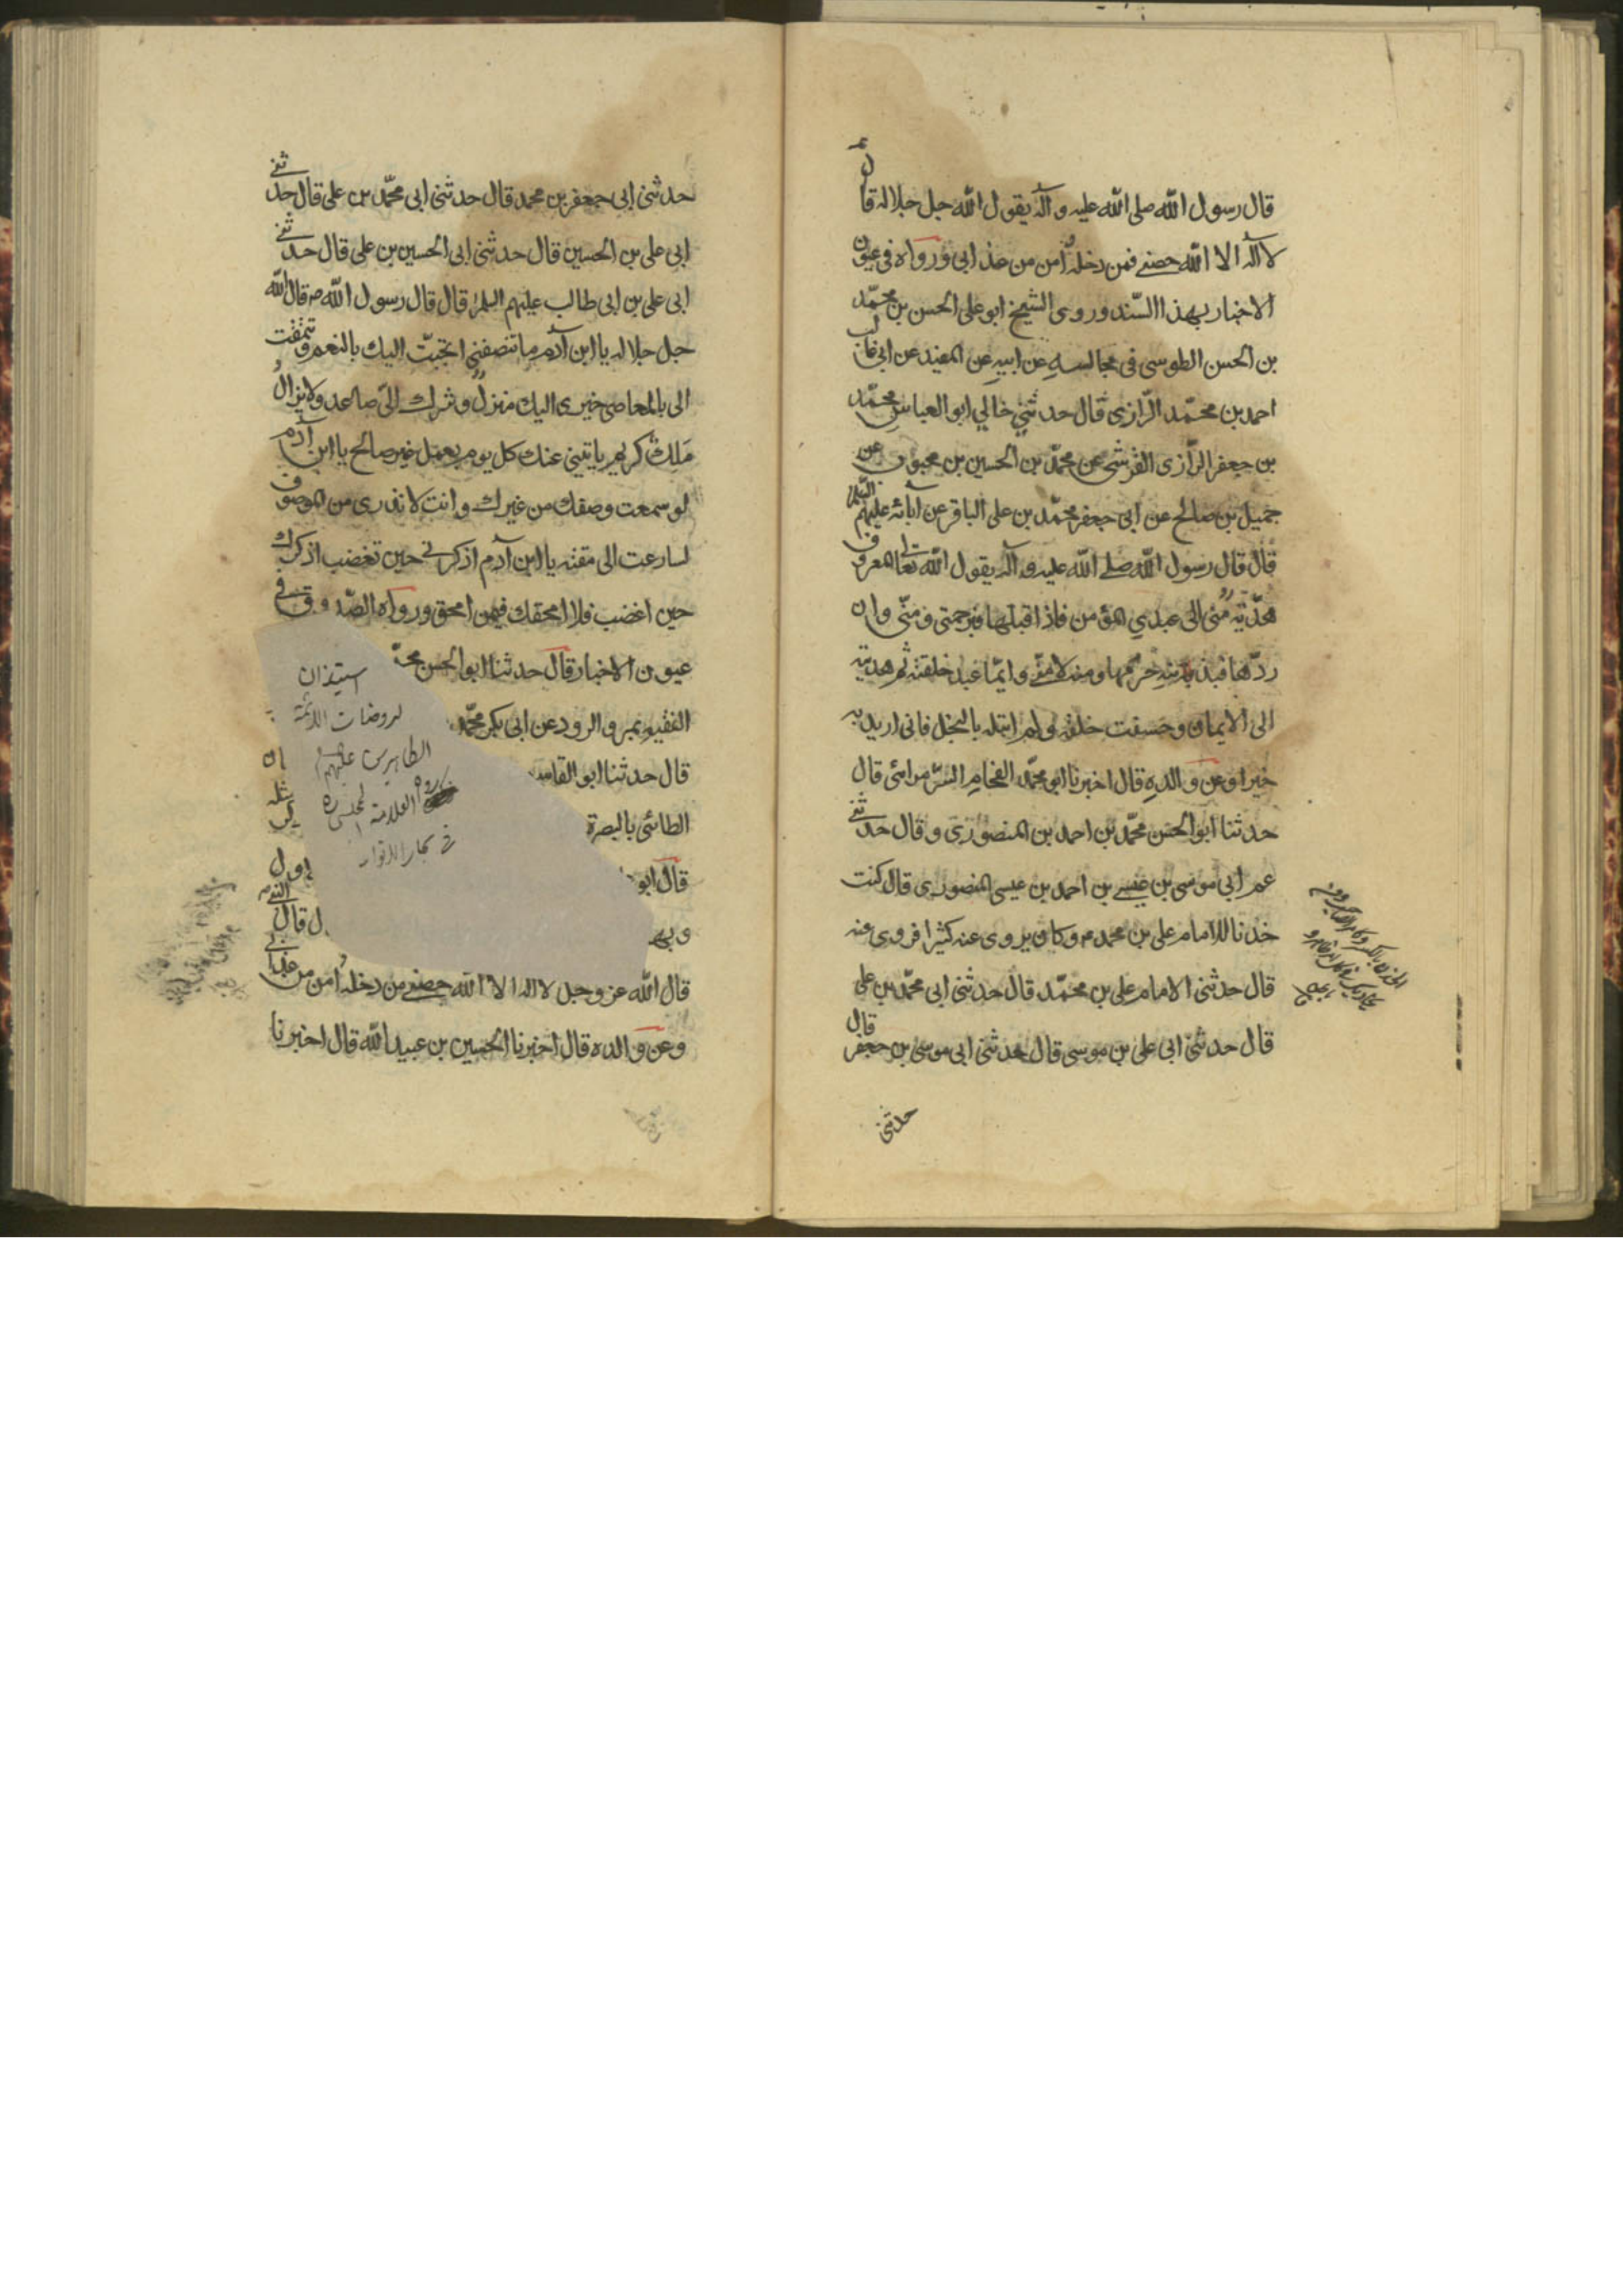 قال رسول الله صلى الله عليه وآله يقول الله جل جلاله
لا اله الا الله حصنى فمن دخله امن من عذابى ورواه فى عيون
الاخبار بهذا السند وروى الشيخ ابو على الحسن بن محمد
بن الحسن الطوسى فى مجالسه عن ابيه عن المفيد عن ابى غالب
احمد بن محمد الرازى قال حدثنى خالي ابو العباس محمد
بن جعفر الرازى القرشى عن محمد بن الحسين بن محبوب عن
جميل بن صالح عن ابى جعفر محمد بن على الباقر عن آبائه عليهم السلم
قال قال رسول الله صلى الله عليه وآله يقول الله تعالى المعروف
هديّة منى الى عبدي المؤمن فاذا قبلها فبرحمتى ومنّى وان
ردّها فبذنبه حرمها ومنه لا منّى وايّما عبد خلقته ثم هديته
الى الايمان وحسنت خلقه ولم ابتله بالبخل فانى اريد به
خيرا وعن والده قال اخبرنا ابو محمد الفحام السر مرامى قال
حدثنا ابو الحسن محمد بن احمد بن المنصورى وقال حدثنى
عم ابى موسى بن عيسى بن احمد بن عيسى المنصورى قال كنت
خدنا للامام على بن محمد وكان يروى عنه كثيرا فروى عنه
قال حدثنى الامام على بن محمد قال حدثنى ابى محمد بن على
قال حدثنى ابى على بن موسى قال حدثنى ابى موسى بن جعفر قال
حدثنى
حدثنى ابى جعفر بن محمد قال حدثنى ابى محمد بن على قال حدثنى
ابى على بن الحسين قال حدثنى ابى الحسين بن على قال حدثنى
ابى على بن ابى طالب عليهم السلم قال قال رسول الله ص قال الله
جل جلاله يا ابن آدم ما تنصفنى اتحبّب اليك بالنعم وتتمقت
الى بالمعاصى خيرى اليك منزل وشرك الىّ صاعد ولا يزال
ملك كريم ياتينى عنك كل يوم بعمل غير صالح يا ابن آدم
لو سمعت وصفك من غيرك وانت لا تدرى من الموصوف
لسارعت الى مقته يا ابن آدم اذكرنى حين تغضب اذكرك
حين اغضب فلا امحقك فيمن امحق ورواه الصدوق فى
عيون الاخبار قال حدثنا ابو الحسن محمّ
الفقيه بمرو الرود عن ابى بكر محمد
قال حدثنا ابو القاسم
الطائى بالبصرة
قال ابو
وبه ل قال
قال الله عز وجل لا اله الا الله حصنى من دخله امن من عذابى
وعن والده قال اخبرنا الحسين بن عبيد الله قال اخبرنا
استيذان
لروضات الائمة
الطاهرين عليهم
العلامة المجلسى ره
فى بحار الانوار